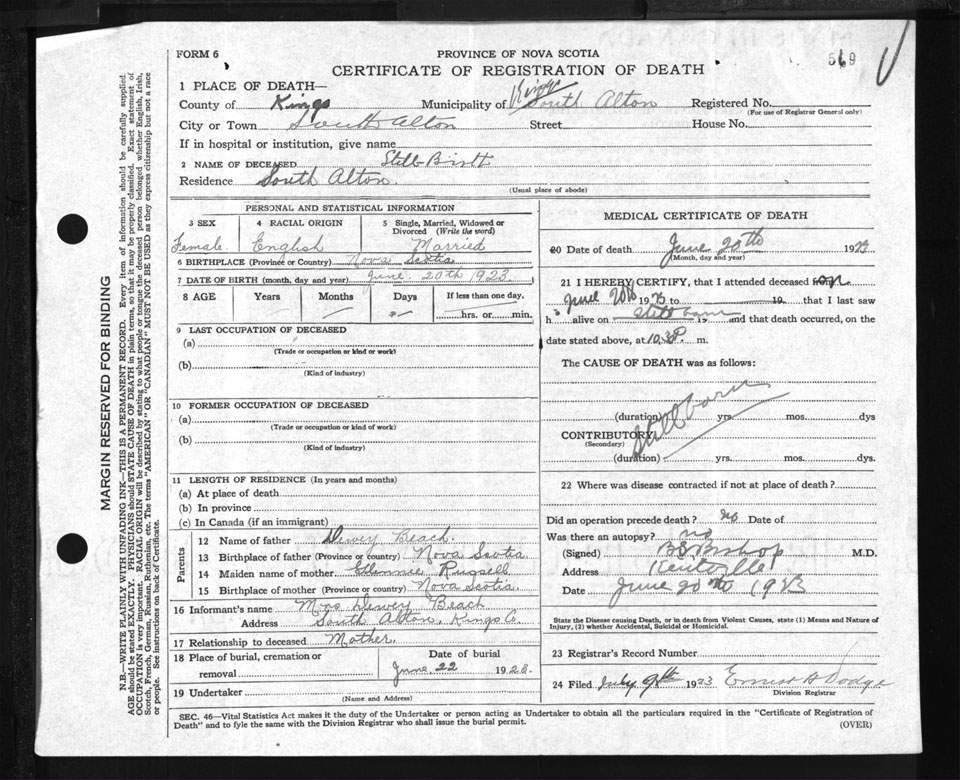 FORM 6
PROVINCE OF NOVA SCOTIA
569
CERTIFICATE OF REGISTRATION OF DEATH
1 PLACE OF DEATH—
County of Kings Municipality of Kings South Alton Registered No.
(For use of Registrar General only)
City or Town South Alton Street House No.
If in hospital or institution, give name
2 NAME OF DECEASED Still Birth
Residence South Alton.
(Usual place of abode)
PERSONAL AND STATISTICAL INFORMATION
3 SEX 4 RACIAL ORIGIN 5 Single, Married, Widowed or Divorced (Write the word)
Female. English Married
6 BIRTHPLACE (Province or Country) Nova Scotia
7 DATE OF BIRTH (month, day and year) June. 20th 1923.
8 AGE Years Months Days If less than one day,
hrs. or min.
9 LAST OCCUPATION OF DECEASED
(a)
(Trade or occupation or kind or work)
(b)
(Kind of industry)
10 FORMER OCCUPATION OF DECEASED
(a)
(Trade or occupation or kind of work)
(b)
(Kind of industry)
11 LENGTH OF RESIDENCE (In years and months)
(a) At place of death
(b) In province
(c) In Canada (if an immigrant)
Parents
12 Name of father Dewey Beach.
13 Birthplace of father (Province or country) Nova Scotia
14 Maiden name of mother
15 Birthplace of mother (Province or country) Nova Scotia.
16 Informant's name Mrs Dewey Beach
Address South Alton, Kings Co.
17 Relationship to deceased Mother.
18 Place of burial, cremation or removal Date of burial
June 22 1923.
19 Undertaker
(Name and Address)
MEDICAL CERTIFICATE OF DEATH
20 Date of death June 20th 1923
(Month, day and year)
21 I HEREBY CERTIFY, that I attended deceased
June 20th 1923 to 19 that I last saw
h alive on Still born 19 and that death occurred, on the
date stated above, at 10.30 P. m.
The CAUSE OF DEATH was as follows:
Still born
(duration) yrs. mos. dys
CONTRIBUTORY
(Secondary)
(duration) yrs. mos. dys.
22 Where was disease contracted if not at place of death?
Did an operation precede death? no Date of
Was there an autopsy? no
(Signed) Bishop M.D.
Address Kentville
Date June 20th 1923
State the Disease causing Death, or in death from Violent Causes, state (1) Means and Nature of
Injury, (2) whether Accidental, Suicidal or Homicidal.
23 Registrar's Record Number
24 Filed July 9th 1923 Ernest Dodge
Division Registrar
SEC. 46—Vital Statistics Act makes it the duty of the Undertaker or person acting as Undertaker to obtain all the particulars required in the "Certificate of Registration of
Death" and to fyle the same with the Division Registrar who shall issue the burial permit.
(OVER)
MARGIN RESERVED FOR BINDING
N.B.—WRITE PLAINLY WITH UNFADING INK—THIS IS A PERMANENT RECORD. Every item of information should be carefully supplied.
AGE should be stated EXACTLY. PHYSICIANS should STATE CAUSE OF DEATH in plain terms, so that it may be properly classified. Exact statement of
OCCUPATION is very important. RACIAL ORIGIN will be described by stating to what people or tongue the deceased person belonged whether English, Irish,
Scotch, French, German, Russian, Ruthenian, etc. The terms "AMERICAN" OR "CANADIAN" MUST NOT BE USED as they express citizenship but not a race
or people. See instructions on back of Certificate.